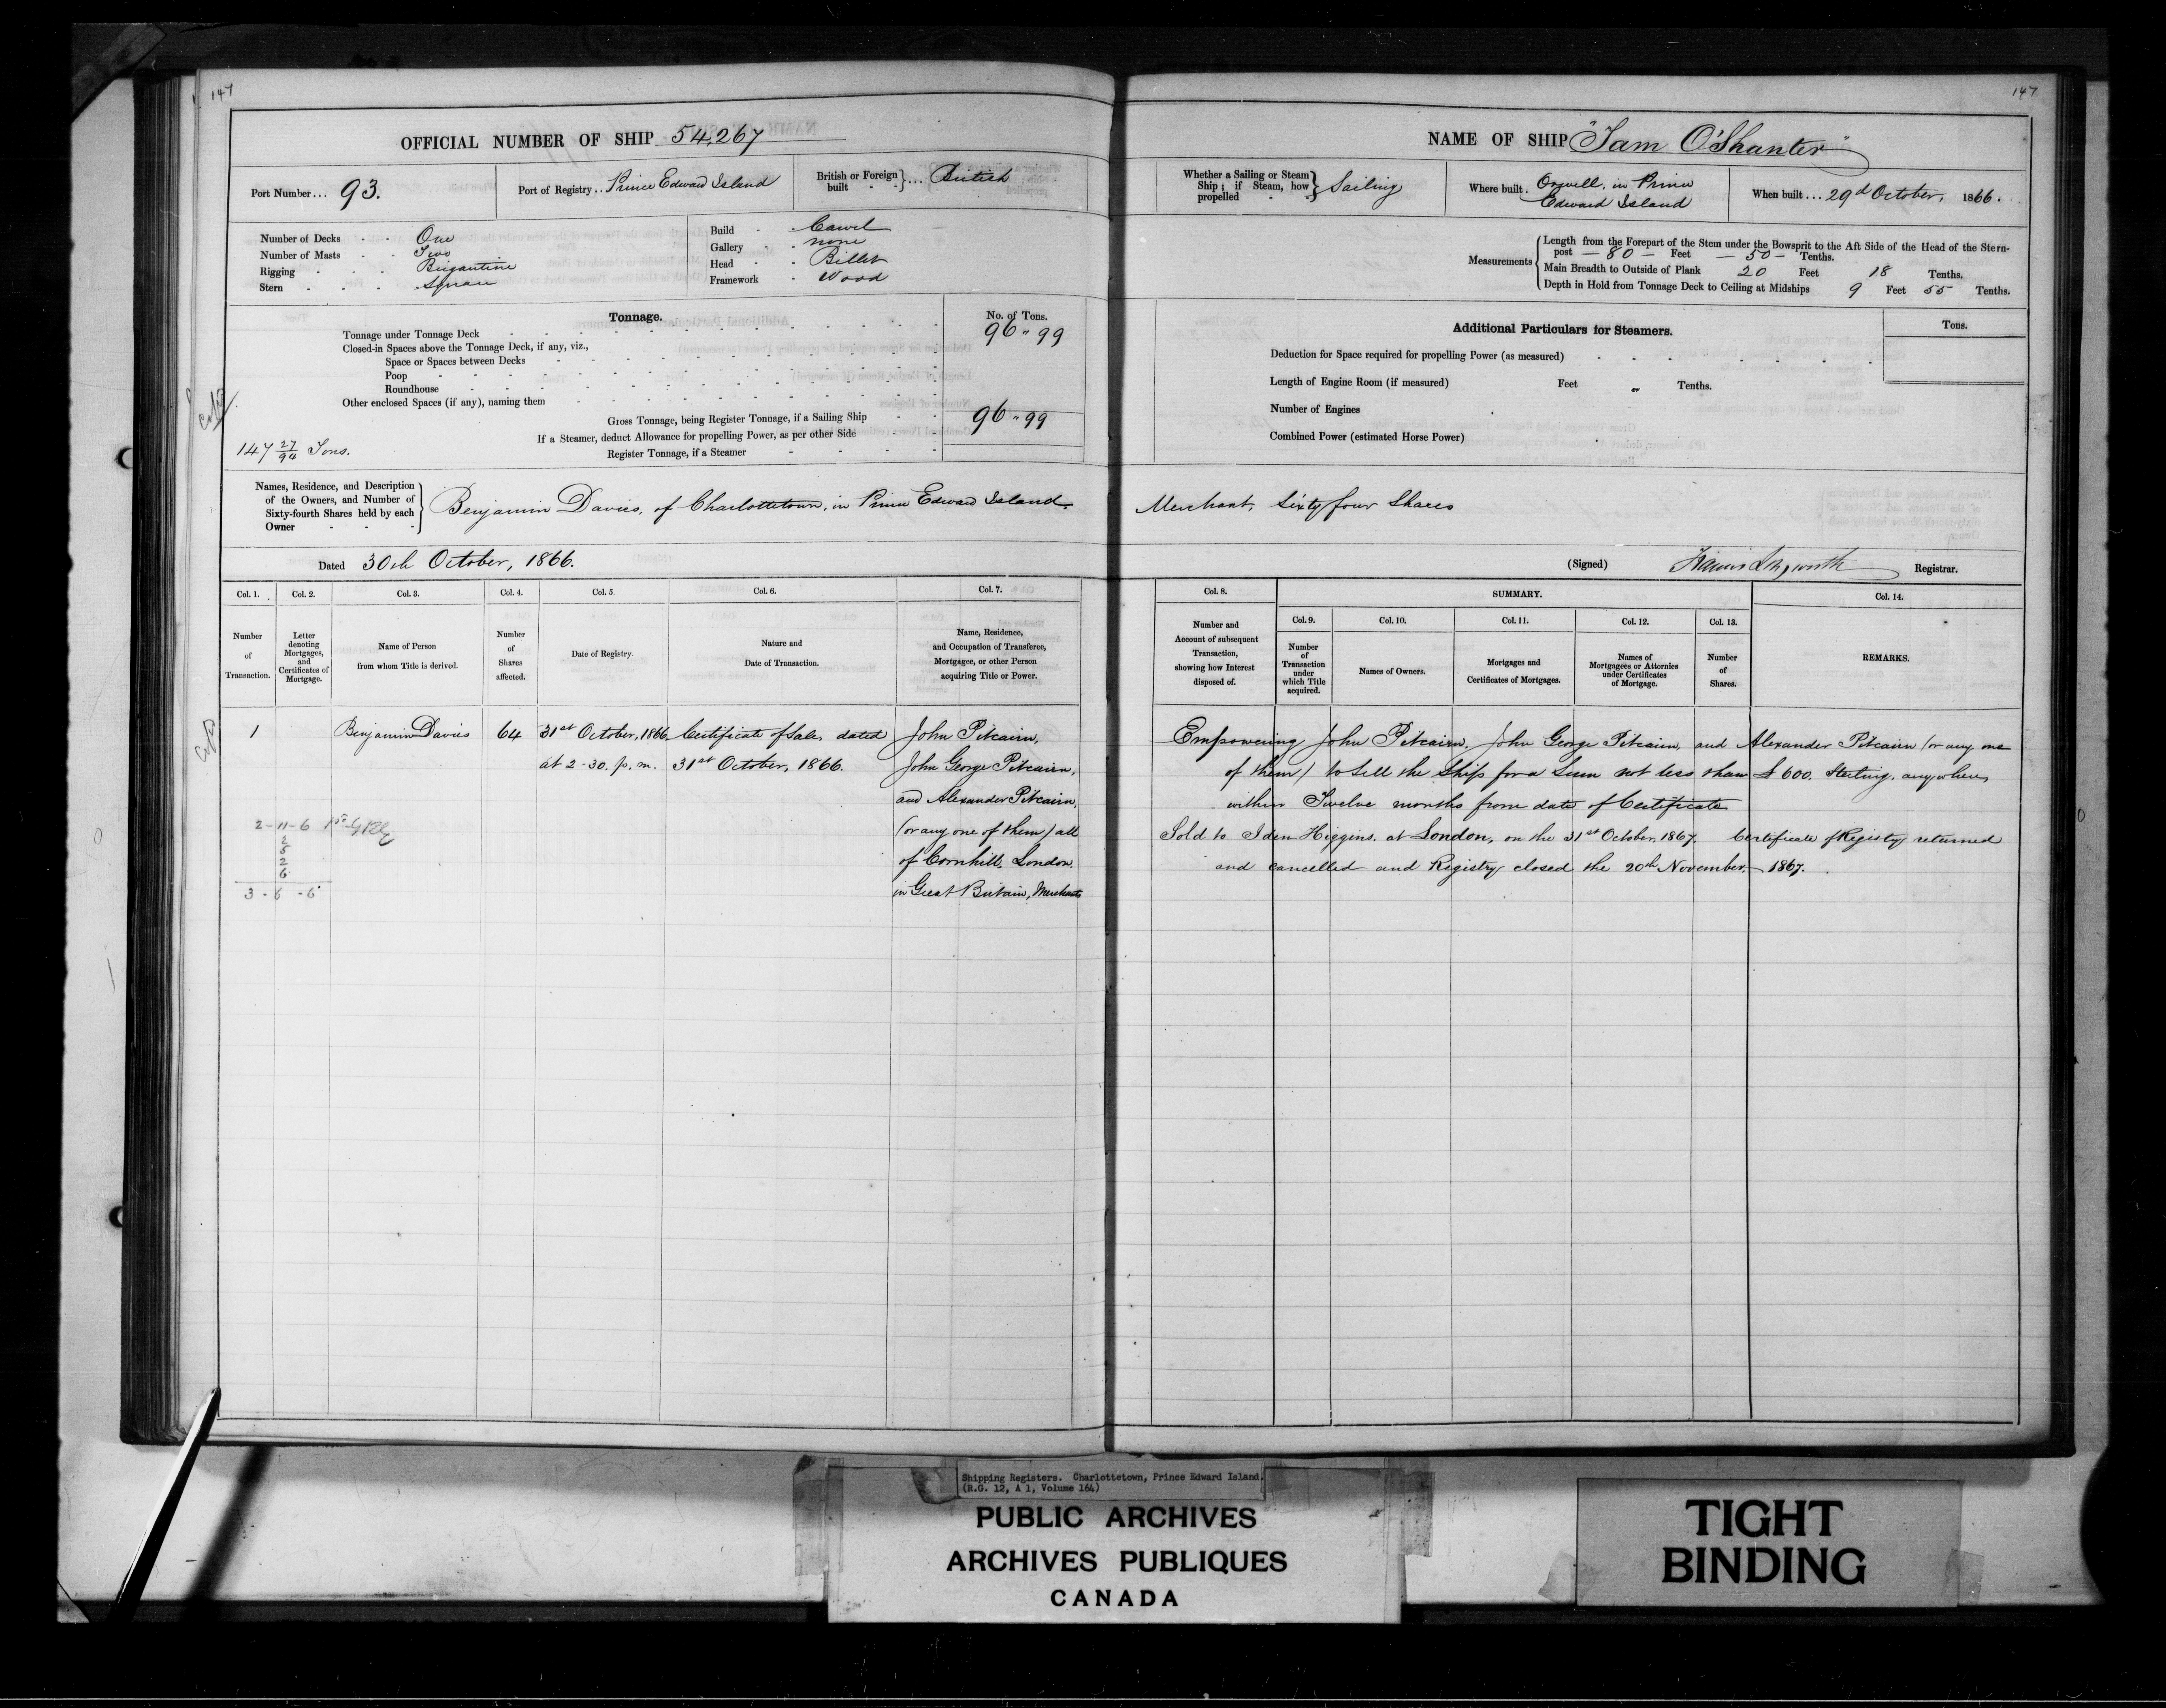 147
OFFICIAL NUMBER OF SHIP 54,267
Port Number... 93.
Port of Registry.. Prince Edward Island
British or Foreign built } ... British
Number of Decks - - One
Number of Masts - - Two
Rigging - - - Brigantine
Stern - - - Square
Build - - Carvel
Gallery - - none
Head - - Billet
Framework - Wood
Tonnage.
No. of Tons.
Tonnage under Tonnage Deck 96 " 99
Closed-in Spaces above the Tonnage Deck, if any, viz.,
Space or Spaces between Decks
Poop
Roundhouse
Other enclosed Spaces (if any), naming them
Gross Tonnage, being Register Tonnage, if a Sailing Ship 96 " 99
If a Steamer, deduct Allowance for propelling Power, as per other Side
147 27/94 Tons.
Register Tonnage, if a Steamer
Names, Residence, and Description
of the Owners, and Number of
Sixty-fourth Shares held by each
Owner
Benjamin Davies, of Charlottetown, in Prince Edward Island.
Dated 30th October, 1866.
Col. 1. Col. 2. Col. 3. Col. 4. Col. 5. Col. 6. Col. 7.
Number of Transaction.
Letter denoting Mortgages, and Certificates of Mortgage.
Name of Person from whom Title is derived.
Number of Shares affected.
Date of Registry.
Nature and Date of Transaction.
Name, Residence, and Occupation of Transferee, Mortgagee, or other Person acquiring Title or Power.
1 Benjamin Davies 64 31st October, 1866, Certificate of Sale, dated John Pitcairn,
at 2-30. p.m. 31st October, 1866. John George Pitcairn,
and Alexander Pitcairn,
(or any one of them) all
of Cornhill, London.
in Great Britain, Merchants
2-11-6
2
5
2
6
3-6-6
147
NAME OF SHIP "Tam O'Shanter"
Whether a Sailing or Steam
Ship; if Steam, how
propelled
Sailing
Where built. Orwell, in Prince
Edward Island
When built... 29d October, 1866.
Measurements
Length from the Forepart of the Stem under the Bowsprit to the Aft Side of the Head of the Stern-
post - 80 - Feet - 50 - Tenths.
Main Breadth to Outside of Plank 20 Feet 18 Tenths.
Depth in Hold from Tonnage Deck to Ceiling at Midships 9 Feet 55 Tenths.
Additional Particulars for Steamers.
Tons.
Deduction for Space required for propelling Power (as measured)
Length of Engine Room (if measured) Feet Tenths.
Number of Engines
Combined Power (estimated Horse Power)
Merchant, Sixty four Shares
(Signed) Registrar.
Col. 8. SUMMARY. Col. 14.
Col. 9. Col. 10. Col. 11. Col. 12. Col. 13.
Number and Account of subsequent Transaction, showing how Interest disposed of.
Number of Transaction under which Title acquired.
Names of Owners.
Mortgages and Certificates of Mortgages.
Names of Mortgagees or Attornies under Certificates of Mortgage.
Number of Shares.
REMARKS.
Empowering John Pitcairn, John George Pitcairn, and Alexander Pitcairn (or any one
of them) to sell the Ship for a Sum not less than £ 600. Sterling, anywhere,
within Twelve months from date of Certificate
Sold to Iden Higgins, at London, on the 31st October, 1867. Certificate of Registry returned
and cancelled and Registry closed the 20th November, 1867.
Shipping Registers. Charlottetown, Prince Edward Island.
(R.G. 12, A 1, Volume 164)
PUBLIC ARCHIVES
ARCHIVES PUBLIQUES
CANADA
TIGHT
BINDING